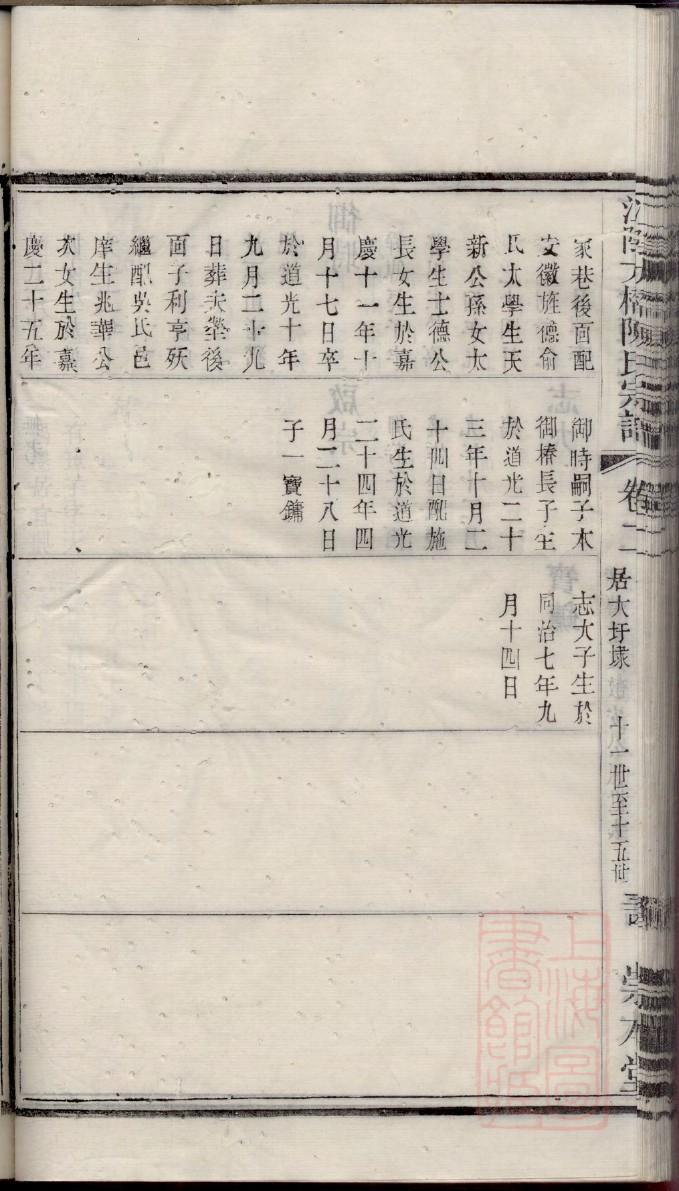 江陰大橋陳氏宗譜
卷二
居大圩埭
十一世至十五世
崇本堂
家巷後面配
安徽旌德俞
氏太學生天
新公孫女太
學生士德公
長女生於嘉
慶十一年十
月十七日卒
於道光十年
九月二十九
日葬大塋後
面子利亨殀
繼配吳氏邑
庠生兆華公
次女生於嘉
慶二十五年
御時嗣子木
御椿長子生
於道光二十
三年十月二
十四日配施
氏生於道光
二十四年四
月二十八日
子一寶鏞
志大子生於
同治七年九
月十四日
上海圖書館藏